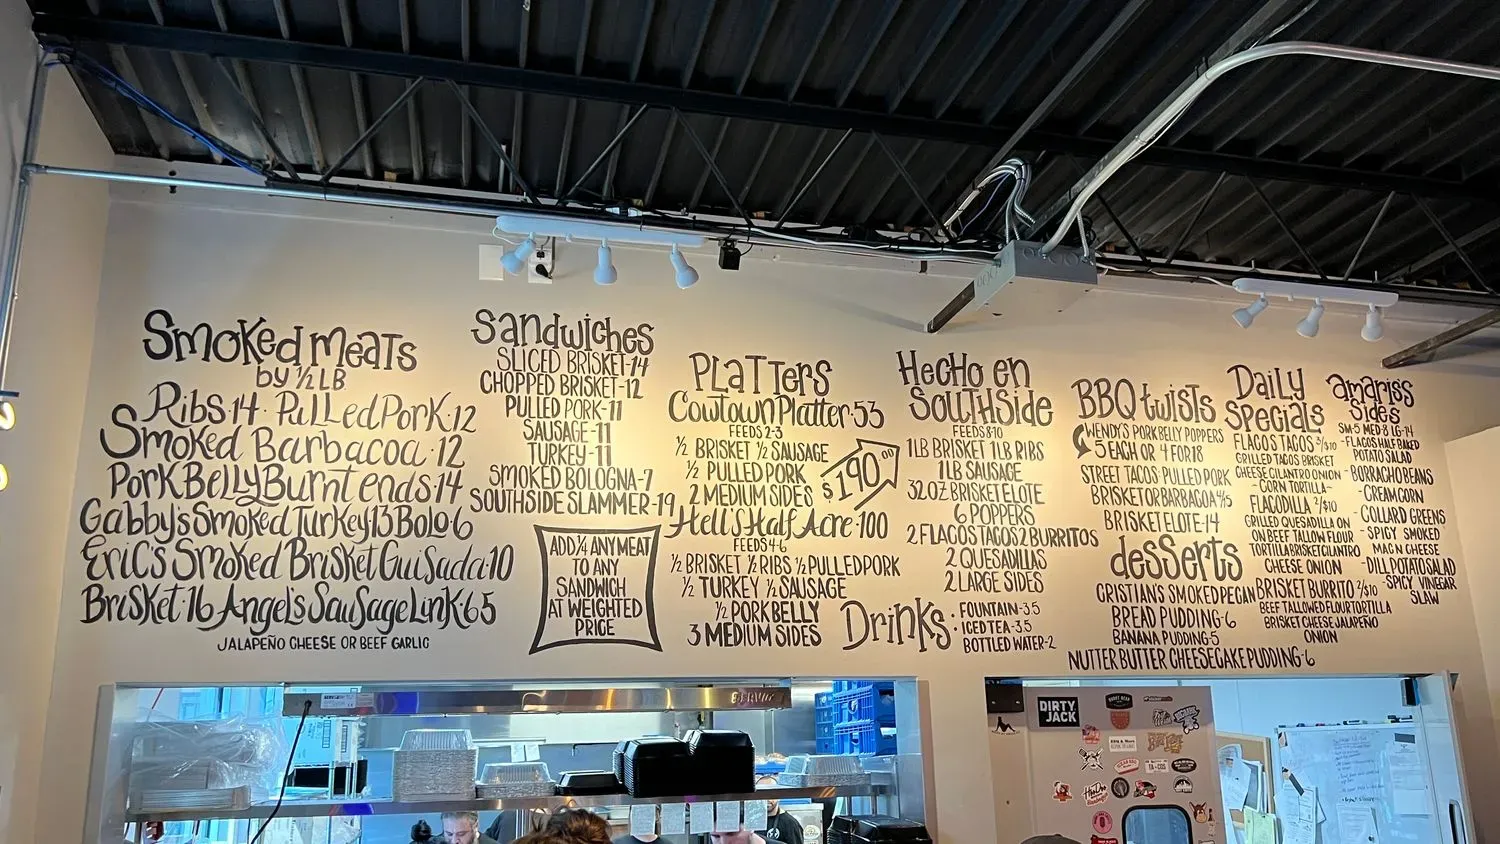 Smoked Meats
by 1/2 LB
Ribs 14 · Pulled Pork · 12
Smoked Barbacoa · 12
Pork Belly Burnt ends 14
Gabby's Smoked Turkey 13 Bolo · 6
Eric's Smoked Brisket Guisada · 10
Brisket · 16 Angel's Sausage Link · 6.5
JALAPEÑO CHEESE OR BEEF GARLIC
Sandwiches
SLICED BRISKET-14
CHOPPED BRISKET-12
PULLED PORK-11
SAUSAGE-11
TURKEY-11
SMOKED BOLOGNA-7
SOUTHSIDE SLAMMER-19
ADD 1/4 ANY MEAT
TO ANY
SANDWICH
AT WEIGHTED
PRICE
Platters
Cowtown Platter · 53
FEEDS 2-3
1/2 BRISKET 1/2 SAUSAGE
1/2 PULLED PORK
2 MEDIUM SIDES
Hell's Half Acre · 100
FEEDS 4-6
1/2 BRISKET 1/2 RIBS 1/2 PULLED PORK
1/2 TURKEY 1/2 SAUSAGE
1/2 PORK BELLY
3 MEDIUM SIDES
$190.00
Hecho en
Southside
FEEDS 8-10
1LB BRISKET 1LB RIBS
1LB SAUSAGE
32OZ BRISKET ELOTE
6 POPPERS
2 FLACOS TACOS 2 BURRITOS
2 QUESADILLAS
2 LARGE SIDES
Drinks:
FOUNTAIN-3.5
ICED TEA-3.5
BOTTLED WATER-2
BBQ twists
WENDY'S PORK BELLY POPPERS
5 EACH OR 4 FOR 18
STREET TACOS: PULLED PORK
BRISKET OR BARBACOA 4/15
BRISKET ELOTE-14
desserts
CRISTIAN'S SMOKED PECAN
BREAD PUDDING-6
BANANA PUDDING-5
NUTTER BUTTER CHEESECAKE PUDDING-6
Daily
Specials
FLACOS TACOS 3/$10
GRILLED TACOS BRISKET
CHEESE CILANTRO ONION
- CORN TORTILLA -
FLACODILLA 2/$10
GRILLED QUESADILLA ON
ON BEEF TALLOW FLOUR
TORTILLA BRISKET CILANTRO
CHEESE ONION
BRISKET BURRITO 2/$10
BEEF TALLOWED FLOUR TORTILLA
BRISKET CHEESE JALAPEÑO
ONION
amaris's
Sides
SM-5 MED-8 LG-14
-FLACOS HALF BAKED
POTATO SALAD
-BORRACHO BEANS
-CREAM CORN
-COLLARD GREENS
-SPICY SMOKED
MAC N CHEESE
-DILL POTATO SALAD
-SPICY VINEGAR
SLAW
DIRTY
JACK